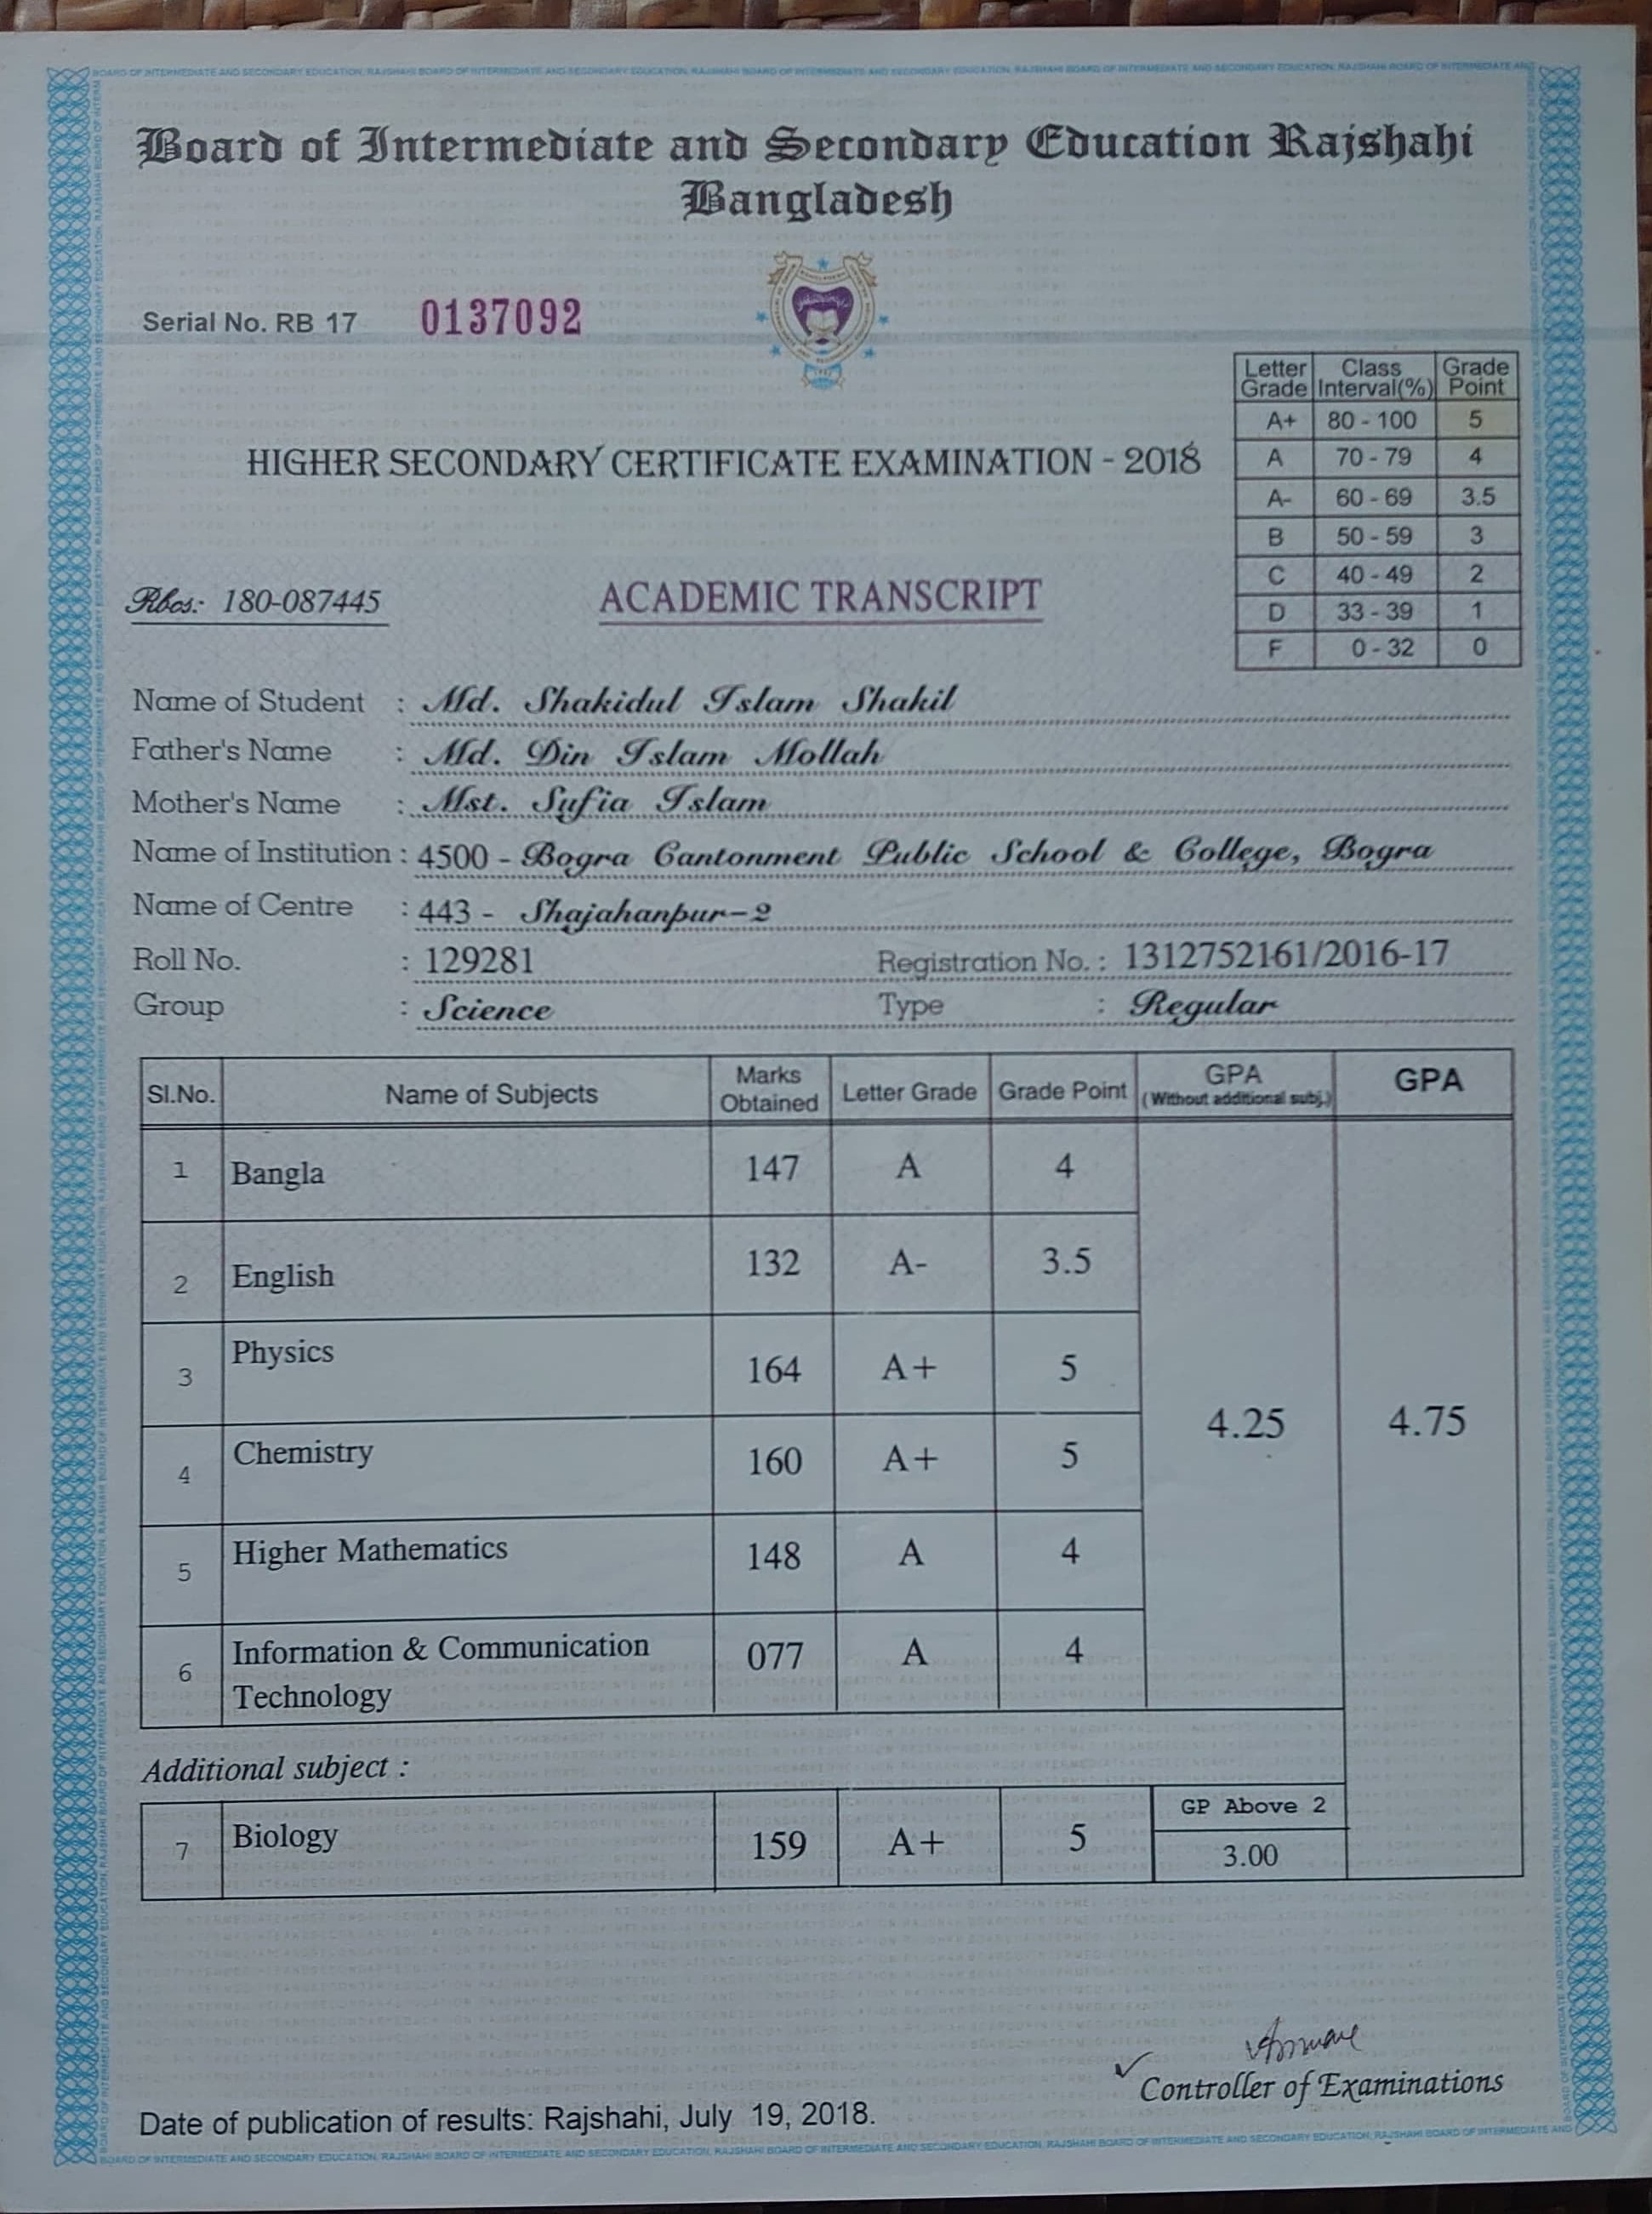 Board of Intermediate and Secondary Education Rajshahi
Bangladesh
Serial No. RB 17 0137092
Letter Grade Class Interval(%) Grade Point
A+ 80 - 100 5
A 70 - 79 4
A- 60 - 69 3.5
B 50 - 59 3
C 40 - 49 2
D 33 - 39 1
F 0 - 32 0
HIGHER SECONDARY CERTIFICATE EXAMINATION - 2018
Rbcs:- 180-087445
ACADEMIC TRANSCRIPT
Name of Student : Md. Shakidul Islam Shakil
Father's Name : Md. Din Islam Mollah
Mother's Name : Mst. Sufia Islam
Name of Institution : 4500 - Bogra Cantonment Public School & College, Bogra
Name of Centre : 443 - Shajahanpur-2
Roll No. : 129281 Registration No. : 1312752161/2016-17
Group : Science Type : Regular
Sl.No. Name of Subjects Marks Obtained Letter Grade Grade Point GPA (Without additional subj.) GPA
1 Bangla 147 A 4
2 English 132 A- 3.5
3 Physics 164 A+ 5
4.25 4.75
4 Chemistry 160 A+ 5
5 Higher Mathematics 148 A 4
6 Information & Communication Technology 077 A 4
Additional subject :
7 Biology 159 A+ 5 GP Above 2
3.00
Controller of Examinations
Date of publication of results: Rajshahi, July 19, 2018.